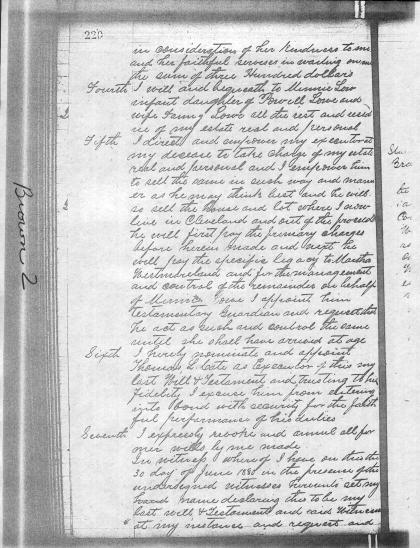 220
in consideration of her Kindness to me
and her faithful services in waiting on me
the sum of three Hundred dollars
Fourth I will and bequeath to Minnie Low
infant daughter of Powell Lowe and
wife Fanny Lowe all the rest and resid
ue of my estate real and personal
Fifth I direct and empower my executor at
my decease to take charge of my estate
real and personal and I empower him
to sell the same in such way and mann
er as he may think best and he will
so sell the house and lot where I now
live in Cleveland and out of the proceeds
he will first pay the primary charges
before herein made and next he
will pay the specific legacy to Martha
Westmoreland and for the management
and control of the remainder on behalf
of Minnie Lowe I appoint him
testamentary Guardian and request that
he act as such and control the same
until she shall have arrived at age
Sixth I hereby nominate and appoint
Thomas L Cate as Executor of this my
last Will & Testament and trusting to his
fidelity I excuse him from entering
into bond with security for the faith
ful performance of his duties
Seventh I expressly revoke and annul all for
mer wills by me made
In witness whereof I have on this the
30 day of June 1880 in the presence of the
undersigned witnesses hereunto set my
hand name declaring this to be my
last will & Testament and said witnesses
at my instance and request and
Brown 2